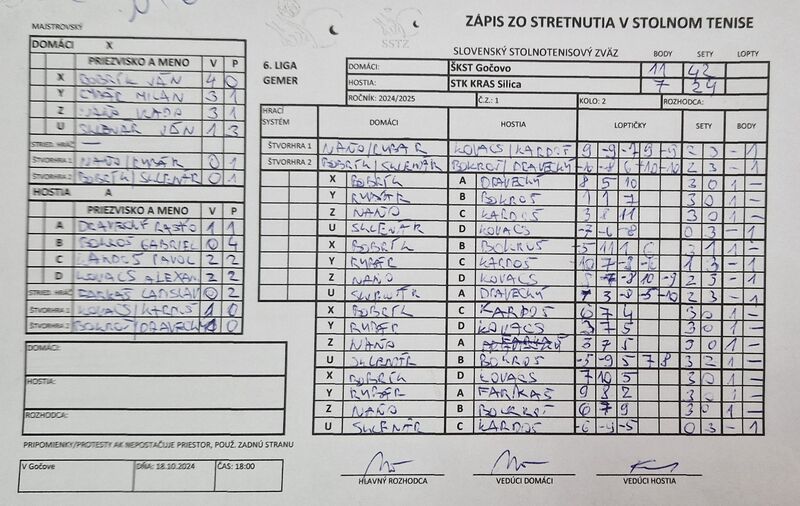 ZÁPIS ZO STRETNUTIA V STOLNOM TENISE
MAJSTROVSKÝ
SSTZ
SLOVENSKÝ STOLNOTENISOVÝ ZVÄZ BODY SETY LOPTY
6. LIGA GEMER
DOMÁCI: ŠKST Gočovo 11 42
HOSTIA: STK KRAS Silica 7 24
ROČNÍK: 2024/2025 Č.Z.: 1 KOLO: 2 ROZHODCA:
DOMÁCI X
PRIEZVISKO A MENO V P
X BOBRÍK JÁN 4 0
Y RYBÁR MILAN 3 1
Z NAŇO VLADO 3 1
U SKLENÁR JÁN 1 3
STRIED. HRÁČ —
ŠTVORHRA 1 NAŇO/RYBÁR 0 1
ŠTVORHRA 2 BOBRÍK/SKLENÁR 0 1
HOSTIA A
PRIEZVISKO A MENO V P
A DRAVECKÝ RASŤO 1 1
B BOKROŠ GABRIEL 0 4
C KARDOŠ PAVOL 2 2
D KOVACS ALEXAN 2 2
STRIED. HRÁČ FARKAŠ LADISLAV 0 2
ŠTVORHRA 1 KOVACS/KARDOŠ 1 0
ŠTVORHRA 2 BOKROŠ/DRAVECKÝ 1 0
DOMÁCI:
HOSTIA:
ROZHODCA:
PRIPOMIENKY/PROTESTY AK NEPOSTAČUJE PRIESTOR, POUŽ. ZADNÚ STRANU
V Gočove DŇA: 18.10.2024 ČAS: 18:00
HRACÍ SYSTÉM DOMÁCI HOSTIA LOPTIČKY SETY BODY
ŠTVORHRA 1 NAŇO/RYBÁR KOVACS/KARDOŠ 9 -9 -7 9 -9 2 3 - 1
ŠTVORHRA 2 BOBRÍK/SKLENÁR BOKROŠ/DRAVECKÝ 2 3 - 1
X BOBRÍK A DRAVECKÝ 8 5 10 3 0 1 -
Y RYBÁR B BOKROŠ 1 1 7 3 0 1 -
Z NAŇO C KARDOŠ 3 8 11 3 0 1 -
U SKLENÁR D KOVACS -7 -6 -8 0 3 - 1
X BOBRÍK B BOKROŠ -5 11 1 6 3 1 1 -
Y RYBÁR C KARDOŠ -10 7 -8 -10 1 3 - 1
Z NAŇO D KOVACS 2 3 - 1
U SKLENÁR A DRAVECKÝ 7 3 -8 -5 -10 2 3 - 1
X BOBRÍK C KARDOŠ 6 7 4 3 0 1 -
Y RYBÁR D KOVACS 3 7 5 3 0 1 -
Z NAŇO A FARKAŠ 3 7 5 3 0 1 -
U SKLENÁR B BOKROŠ -5 -9 5 7 8 3 2 1 -
X BOBRÍK D KOVACS 7 10 5 3 0 1 -
Y RYBÁR A FARKAŠ 9 8 2 3 0 1 -
Z NAŇO B BOKROŠ 6 7 9 3 0 1 -
U SKLENÁR C KARDOŠ -6 -9 -5 0 3 - 1
HLAVNÝ ROZHODCA VEDÚCI DOMÁCI VEDÚCI HOSTIA